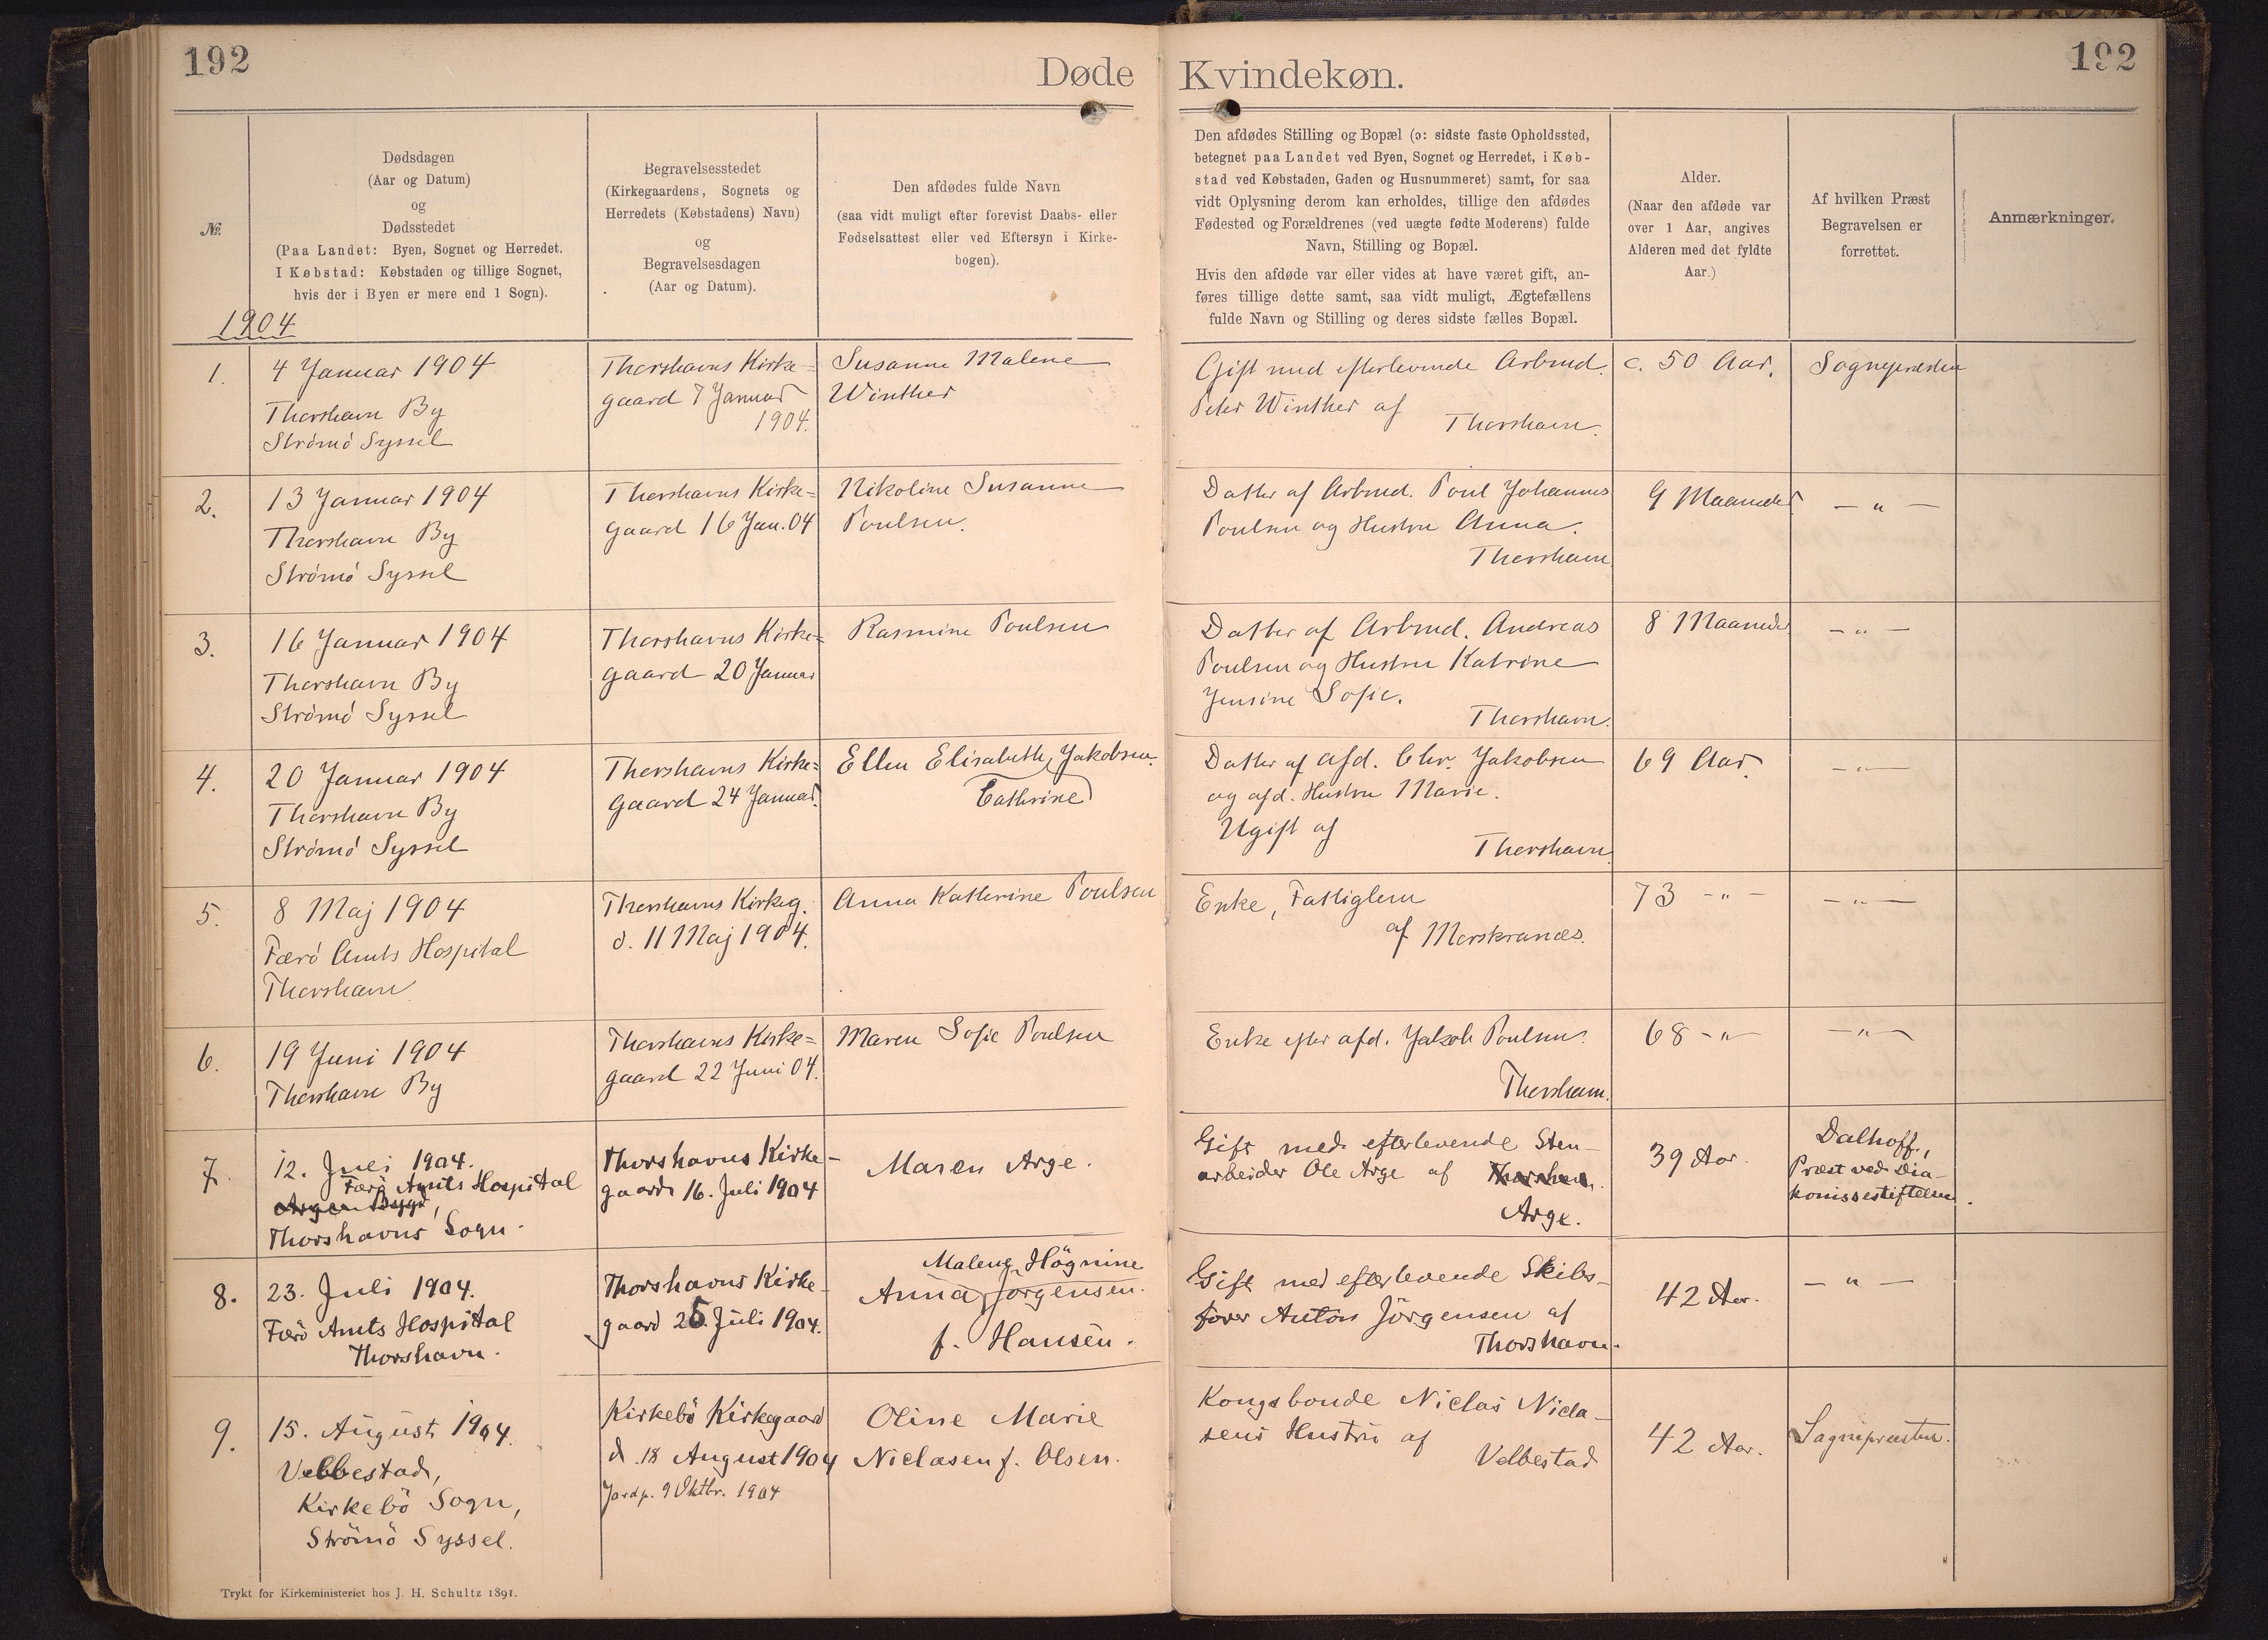 192
Døde
Kvindekøn.
192
№
Dødsdagen
(Aar og Datum)
og
Dødsstedet
(Paa Landet: Byen, Sognet og Herredet.
I Købstad: Købstaden og tillige Sognet,
hvis der i Byen er mere end 1 Sogn).
Begravelsesstedet
(Kirkegaardens, Sognets og
Herredets (Købstadens) Navn)
og
Begravelsesdagen
(Aar og Datum).
Den afdødes fulde Navn
(saa vidt muligt efter forevist Daabs- eller
Fødselsattest eller ved Eftersyn i Kirke-
bogen).
Den afdødes Stilling og Bopæl (ɔ: sidste faste Opholdssted,
betegnet paa Landet ved Byen, Sognet og Herredet, i Køb-
stad ved Købstaden, Gaden og Husnummeret) samt, for saa
vidt Oplysning derom kan erholdes, tillige den afdødes
Fødested og Forældrenes (ved uægte fødte Moderens) fulde
Navn, Stilling og Bopæl.
Hvis den afdøde var eller vides at have været gift, an-
føres tillige dette samt, saa vidt muligt, Ægtefællens
fulde Navn og Stilling og deres sidste fælles Bopæl.
Alder.
(Naar den afdøde var
over 1 Aar, angives
Alderen med det fyldte
Aar.)
Af hvilken Præst
Begravelsen er
forrettet.
Anmærkninger.
1904
1.
4 Januar 1904
Thorshavn By
Strømø Syssel
Thorshavns Kirke=
gaard 7 Januar
1904.
Susanne Malene
Winther
Gift med efterlevende Arbmd.
Peter Winther af
Thorshavn.
c. 50 Aar.
Sognepræsten
2.
13 Januar 1904
Thorshavn By
Strømø Syssel
Thorshavns Kirke=
gaard 16 Jan. 04
Nikoline Susanne
Poulsen.
Datter af Arbmd. Poul Johannes
Poulsen og Hustru Anna.
Thorshavn
9 Maaneder
— " —
3.
16 Januar 1904
Thorshavn By
Strømø Syssel
Thorshavns Kirke=
gaard 20 Januar
Rasmine Poulsen
Datter af Arbmd. Andreas
Poulsen og Hustru Katrine
Jensine Sofie.
Thorshavn.
8 Maaneder
— " —
4.
20 Januar 1904
Thorshavn By
Strømø Syssel
Thorshavns Kirke=
gaard 24 Januar.
Ellen Elisabeth, Jakobsen.
Cathrine
Datter af afd. Chr. Jakobsen
og afd. Hustru Marie.
Ugift af
Thorshavn.
69 Aar.
— " —
5.
8 Maj 1904
Færø Amts Hospital
Thorshavn
Thorshavns Kirkeg.
d. 11 Maj 1904.
Anna Kathrine Poulsen
Enke, Fattiglem
af Morskranes.
73 - " -
— " —
6.
19 Juni 1904
Thorshavn By
Thorshavns Kirke=
gaard 22 Juni 04.
Maren Sofie Poulsen
Enke efter afd. Jakob Poulsen.
Thorshavn.
68 - " -
— " —
7.
12. Juli 1904.
Færø Amts Hospital
Argen Bygd,
Thorshavns Sogn.
Thorshavns Kirke-
gaard 16. Juli 1904
Maren Arge.
Gift med efterlevende Sten-
arbeider Ole Arge af Thorshavn.
Arge.
39 Aar.
Dalhoff,
Præst ved Dia-
konissestiftelsen.
8.
23. Juli 1904.
Færö Amts Hospital
Thorshavn.
Thorshavns Kirke-
gaard 25 Juli 1904.
Malene Högnine
Anna Jørgensen.
f. Hansen.
Gift med efterlevende Skibs-
fører Anton Jörgensen af
Thorshavn.
42 Aar.
— " —
9.
15. August 1904.
Velbestad,
Kirkebö Sogn,
Strömö Syssel.
Kirkebö Kirkegaard
d. 18 August 1904
Jordp. 9 Oktbr. 1904
Oline Marie
Niclasen f. Olsen.
Kongsbonde Niclas Nicla-
sens Hustru af
Velbestad
42 Aar.
Sognepræsten.
Trykt for Kirkeministeriet hos J. H. Schultz 1891.